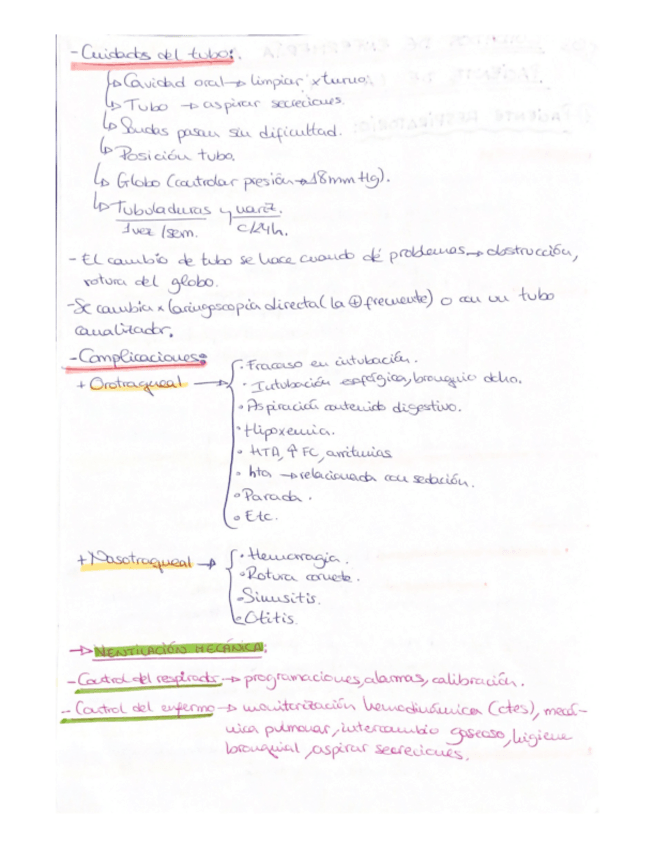 - Cuidados del tubo:
↳ Cavidad oral → limpiar x turno.
↳ Tubo → aspirar secreciones.
↳ Sondas pasan sin dificultad.
↳ Posición tubo.
↳ Globo (controlar presión → 18mmHg).
↳ Tubuladuras y
1vez/sem. c/24h.
- El cambio de tubo se hace cuando dé problemas → obstrucción,
rotura del globo.
- Se cambia x laringoscopia directa (la ⊕ frecuente) o con un tubo
canalizador.
- Complicaciones:
+ Orotraqueal →
• Fracaso en intubación.
• Intubación esofágica, bronquio dcho.
• Aspiración contenido digestivo.
• Hipoxemia.
• HTA, ↑ FC, arritmias
• hta → relacionada con sedación.
• Parada.
• Etc.
+ Nasotraqueal →
• Hemorragia.
• Rotura cornete.
• Sinusitis.
• Otitis.
→ VENTILACIÓN MECÁNICA:
- Control del respirador → programaciones, alarmas, calibración.
- Control del enfermo → monitorización hemodinámica (ctes), mecá-
nica pulmonar, intercambio gaseoso, higiene
bronquial, aspirar secreciones.